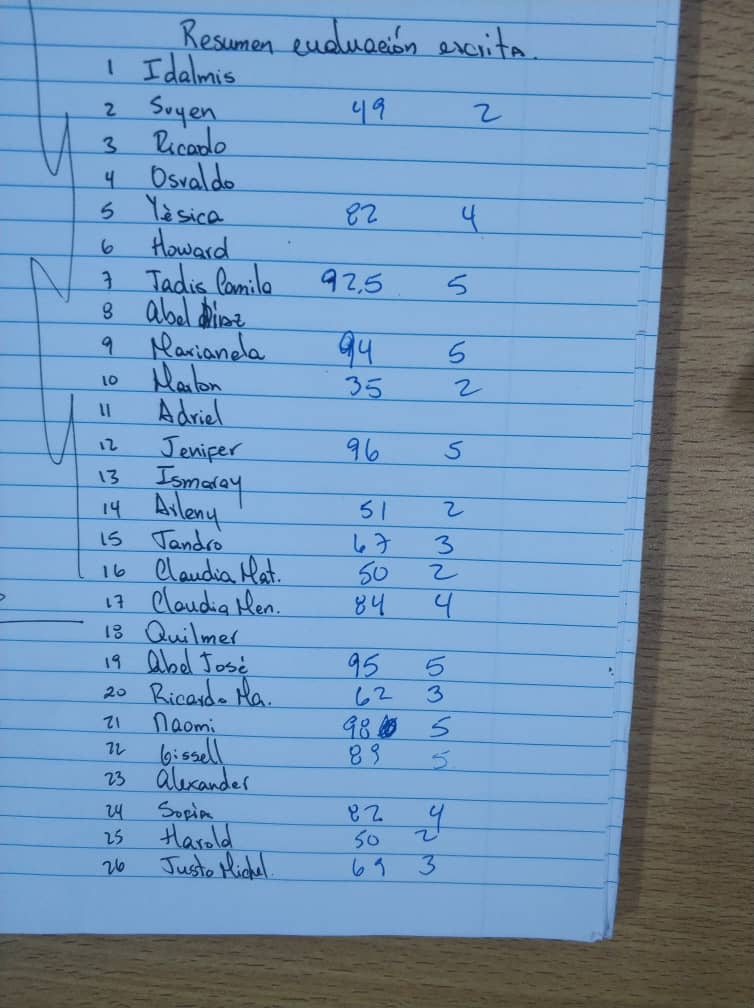 Resumen evaluación escrita.
1 Idalmis
2 Suyen 49 2
3 Ricado
4 Osvaldo
5 Yèsica 82 4
6 Howard
7 Jadis Camila 92,5 5
8 Abel Díaz
9 Marianela 94 5
10 Marlon 35 2
11 Adriel
12 Jenifer 96 5
13 Ismaray
14 Arleny 51 2
15 Jandro 67 3
16 Claudia Mat. 50 2
17 Claudia Men. 84 4
18 Quilmer
19 Abel José 95 5
20 Ricardo Ma. 62 3
21 Naomi 98 5
22 Gissell 89 5
23 Alexander
24 Sofia 82 4
25 Harold 50 2
26 Justo Michel. 69 3